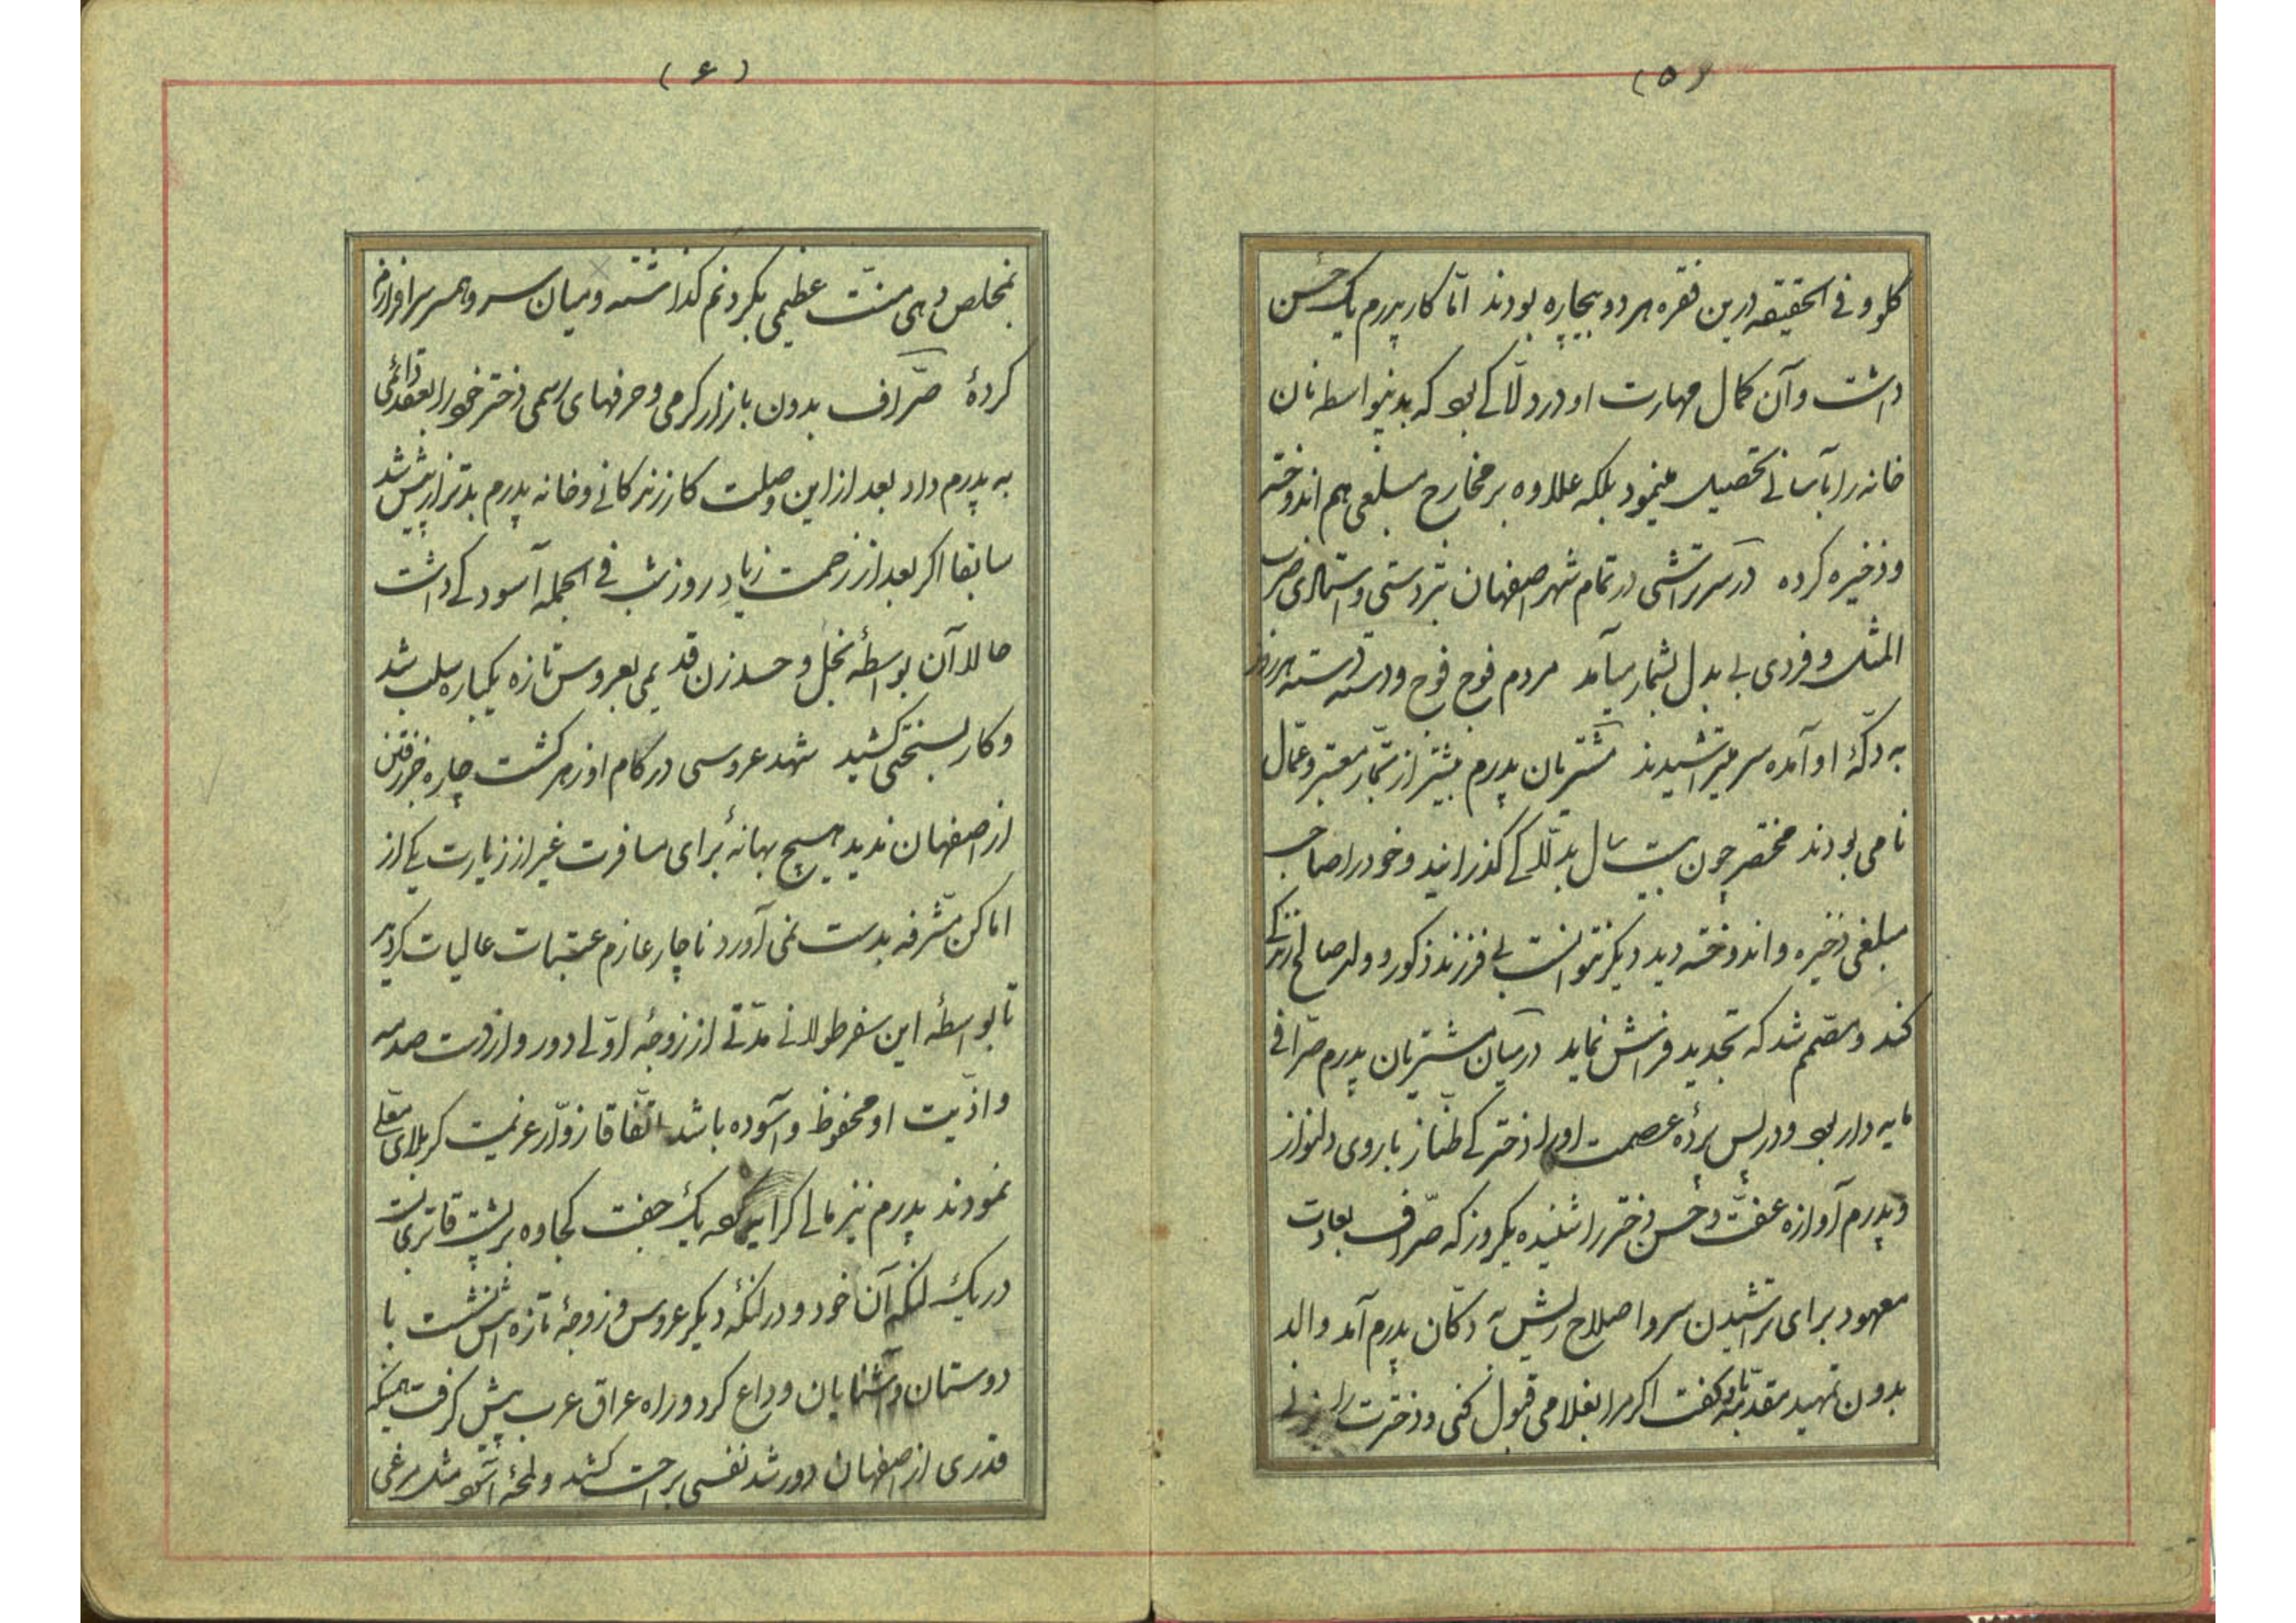 (۵)
کلو و فی الحقیقه درین فقره هر دو بیچاره بودند امّا کار پدرم یک حُسن
داشت و آن کمال مهارت او در دلّاکی بود که بدینواسطه نان
خانه را بآسانی تحصیل مینمود بلکه علاوه بر مخارج مبلغی هم اندوخته
و ذخیره کرده در سرتراشی در تمام شهر اصفهان بتردستی و استادی ضرب
المثل و فردی بی بدل بشمار میآمد مردم فوج فوج و دسته دسته هر روز
به دکّهٔ او آمده سر میتراشیدند مشتریان پدرم بیشتر از تجّار معتبر و عمّال
نامی بودند مختصر چون بیست سال بدلّاکی گذرانید و خود را صاحب
مبلغی ذخیره و اندوخته دید دیگر نتوانست بی فرزند ذکور و ولد صالح زندگی
کند و مصمّم شد که تجدید فراش نماید در میان مشتریان پدرم صرّافی
مایه دار بود و در پس پردهٔ عصمت او را دخترکی طنّاز با روی دلنواز
و پدرم آوازه عفّت و حُسن دختر را شنیده یکروز که صرّاف بعادت
معهود برای تراشیدن سر و اصلاح ریش به دکّان پدرم آمد والد
بدون تمهید مقدّمه باو گفت اگر مرا بغلامی قبول کنی و دخترت را بزنی
(۶)
بمخلص دهی منّت عظیمی بگردنم گذاشته و میان سر و همسر سرافرازم
کردهٔ صرّاف بدون بازار گرمی و حرفهای رسمی دختر خود را بعقد دائمی
به پدرم داد بعد از این وصلت کار زندگانی و خانه پدرم بدتر از پیش شد
سابقا اگر بعد از زحمت زیادِ روز شب فی الجمله آسودگی داشت
حالا آن بواسطهٔ بخل و حسد زن قدیمی بعروس تازه یکباره سلب شد
و کار بسختی کشید شهد عروسی در کام او زهر گشت چاره جز رفتن
از اصفهان ندید هیچ بهانهٔ برای مسافرت غیر از زیارت یکی از
اماکن مشرفه بدست نمی آورد ناچار عازم عتبات عالیات گردید
تا بواسطه این سفر طولانی مدّتی از زوجهٔ اوّلی دور و از دست صدمه
و اذّیت او محفوظ و آسوده باشد اتّفاقا زوّار عزیمت کربلای معّلی
نمودند پدرم نیز مالی کرایه کرد یک جفت کجاوه بر پشت قاتر بست
در یک لنگه آن خود و در لنگهٔ دیگر عروس و زوجهٔ تازه اش نشست با
دوستان و آشنایان وداع کرد و راه عراق عرب پیش گرفت همینکه
قدری از اصفهان دور شد نفسی براحت کشید و لمحهٔ آسود مثل مرغی